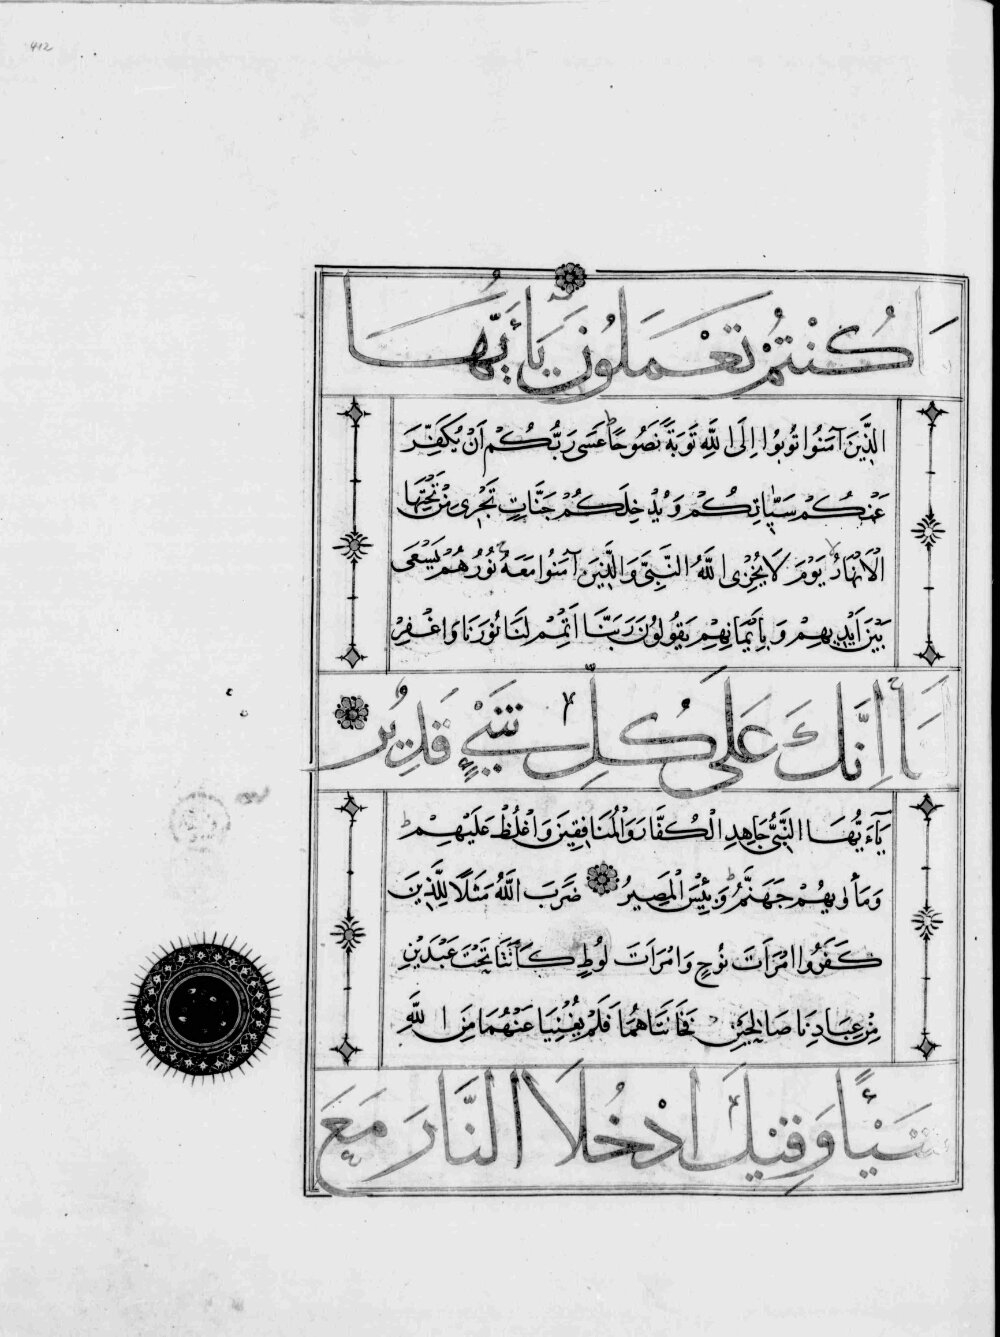 412
ا كُنْتُمْ تَعْمَلُونَ يَآ أَيُّهَا
الَّذِينَ آمَنُوا تُوبُوا إِلَى اللَّهِ تَوْبَةً نَصُوحًا عَسَى رَبُّكُمْ أَنْ يُكَفِّرَ
عَنْكُمْ سَيِّاٰتِكُمْ وَيُدْخِلَكُمْ جَنَّاتٍ تَجْرِى مِنْ تَحْتِهَا
الْاَنْهَارُ يَوْمَ لَا يُخْزِى اللَّهُ النَّبِيَّ وَالَّذِينَ آمَنُوا مَعَهُ نُورُهُمْ يَسْعَى
بَيْنَ اَيْدِيهِمْ وَبِاَيْمَانِهِمْ يَقُولُونَ رَبَّنَا اَتْمِمْ لَنَا نُورَنَا وَاغْفِرْ
لَنَا اِنَّكَ عَلَى كُلِّ شَيْءٍ قَدِيرٌ
يَآءَيُّهَا النَّبِيُّ جَاهِدِ الْكُفَّارَ وَالْمُنَافِقِينَ وَاغْلُظْ عَلَيْهِمْ
وَمَأْوٰيهُمْ جَهَنَّمُ وَبِئْسَ الْمَصِيرُ ضَرَبَ اللَّهُ مَثَلًا لِلَّذِينَ
كَفَرُوا امْرَاَتَ نُوحٍ وَامْرَاَتَ لُوطٍ كَانَتَا تَحْتَ عَبْدَيْنِ
مِنْ عِبَادِنَا صَالِحَيْنِ فَخَانَتَاهُمَا فَلَمْ يُغْنِيَا عَنْهُمَا مِنَ اللَّهِ
شَيْئًا وَقِيلَ ادْخُلَا النَّارَ مَعَ